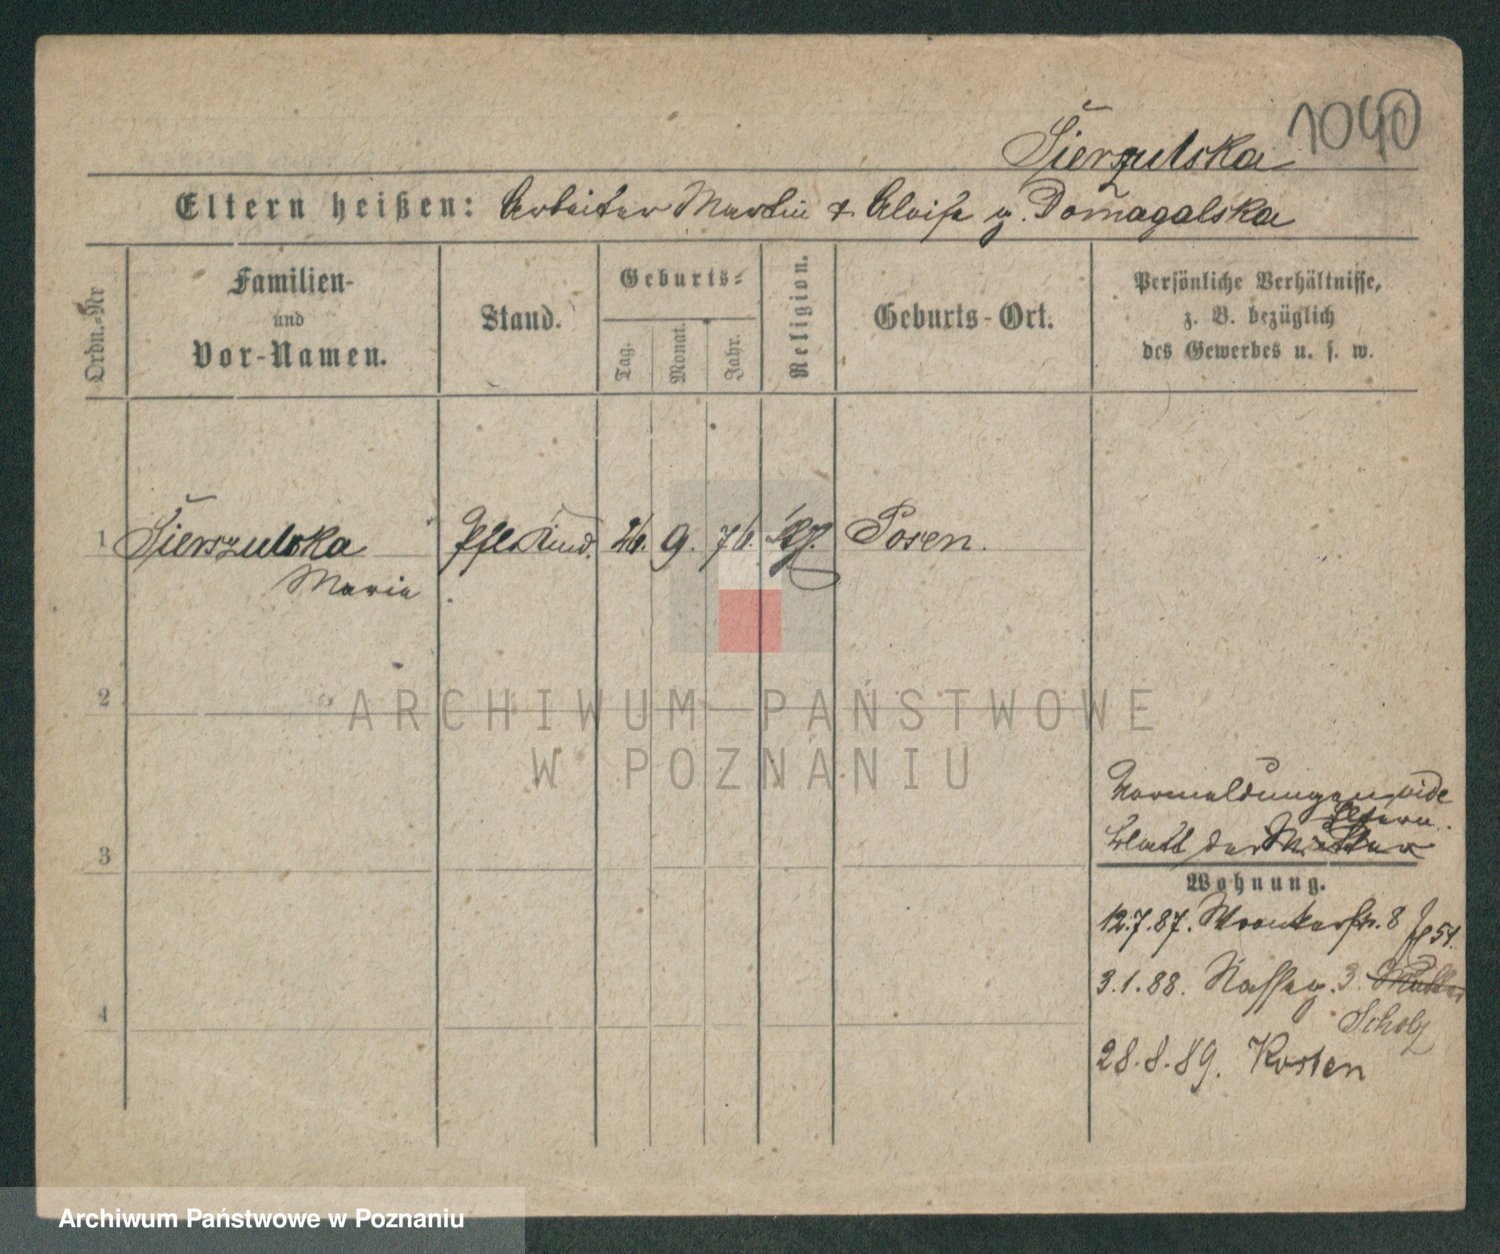 1040
Sierszulska
Eltern heißen: Arbeiter Martin & Aloise g. Domagalska
Ordn.-Nr
Familien-
und
Vor-Namen.
Stand.
Geburts-
Tag.
Monat.
Jahr.
Religion.
Geburts-Ort.
Persönliche Verhältnisse,
z. B. bezüglich
des Gewerbes u. s. w.
1 Sierszulska Pfl. Kind. 26. 9. 76. Posen.
Maria
2
3
4
Vormeldungen vide
Eltern.
Blatt der Mutter
Wohnung.
12.7.87. Wronkerstr. 8
3.1.88. 3. Mutter
Scholz
28.8.89. Kosten
ARCHIWUM PAŃSTWOWE
W POZNANIU
Archiwum Państwowe w Poznaniu